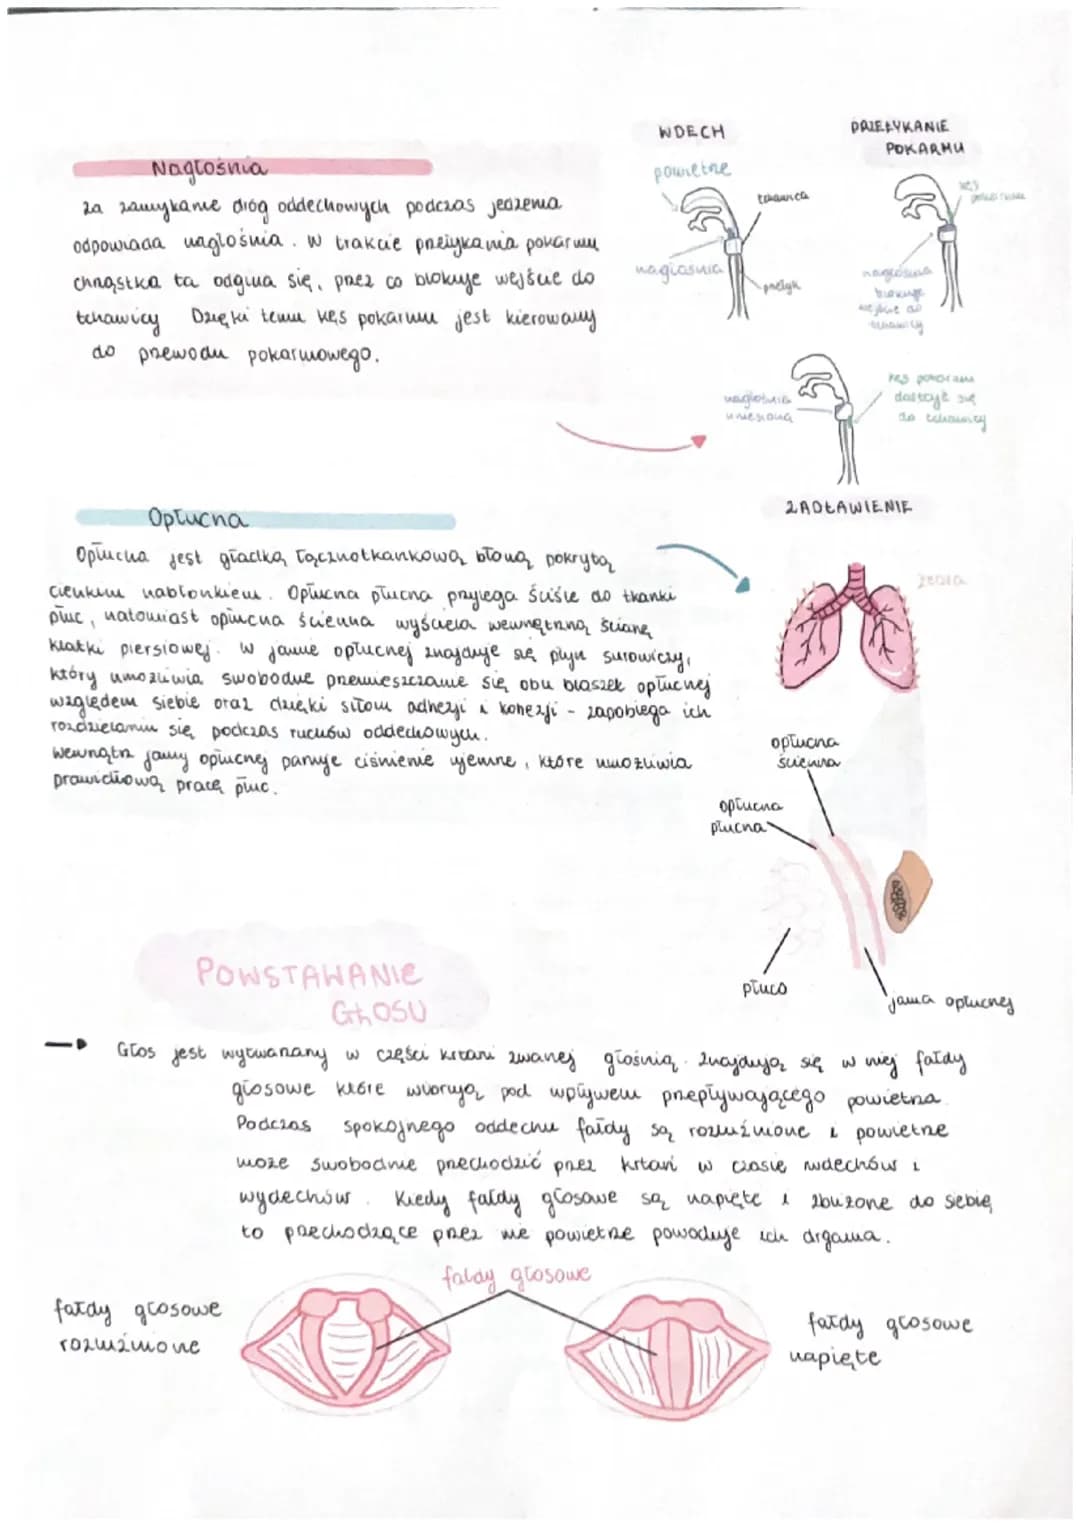 Nagłośnia
Za zamykanie dróg oddechowych podczas jedzenia
odpowiada nagłośnia. W trakcie przełykania pokarmu
chrząstka ta odgina się, przez co blokuje wejście do
tchawicy Dzięki temu kęs pokarmu jest kierowany
do przewodu pokarmowego.
WDECH
powietrze
tchawica
nagłośnia
przełyk
PRZEŁYKANIE
POKARMU
kęs
pokarmu
nagłośnia
blokuje
wejście do
tchawicy
nagłośnia
uniesiona
kęs pokarmu
dostaje się
do tchawicy
ZADŁAWIENIE
Opłucna
Opłucna jest gładką łącznotkankową błoną pokrytą
cienkim nabłonkiem. Opłucna płucna przylega ściśle do tkanki
płuc, natomiast opłucna ścienna wyściela wewnętrzną ścianę
klatki piersiowej. W jamie opłucnej znajduje się płyn surowiczy,
który umożliwia swobodne przemieszczanie się obu blaszek opłucnej
względem siebie oraz dzięki siłom adhezji i kohezji - zapobiega ich
rozdzielaniu się podczas ruchów oddechowych.
Wewnątrz jamy opłucnej panuje ciśnienie ujemne, które umożliwia
prawidłową pracę płuc.
żebra
opłucna
ścienna
opłucna
płucna
płuco
jama opłucnej
POWSTAWANIE
GŁOSU
Głos jest wytwarzany w części krtani zwanej głośnią. Znajdują się w niej fałdy
głosowe które wibrują pod wpływem przepływającego powietrza.
Podczas spokojnego oddechu fałdy są rozluźnione i powietrze
może swobodnie przechodzić przez krtań w czasie wdechów i
wydechów. Kiedy fałdy głosowe są napięte i zbliżone do siebie
to przechodzące przez nie powietrze powoduje ich drgania.
fałdy głosowe
fałdy głosowe
rozluźnione
fałdy głosowe
napięte